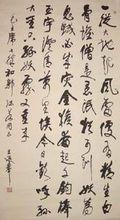 一從大地起風雷便有精生白
骨堆僧是愚氓猶可訓妖為
鬼蜮必成災金猴奮起千鈞棒
玉宇澄清萬里埃今日歡呼孫
大聖只緣妖霧又重來
毛主席七律和郭沫若同志